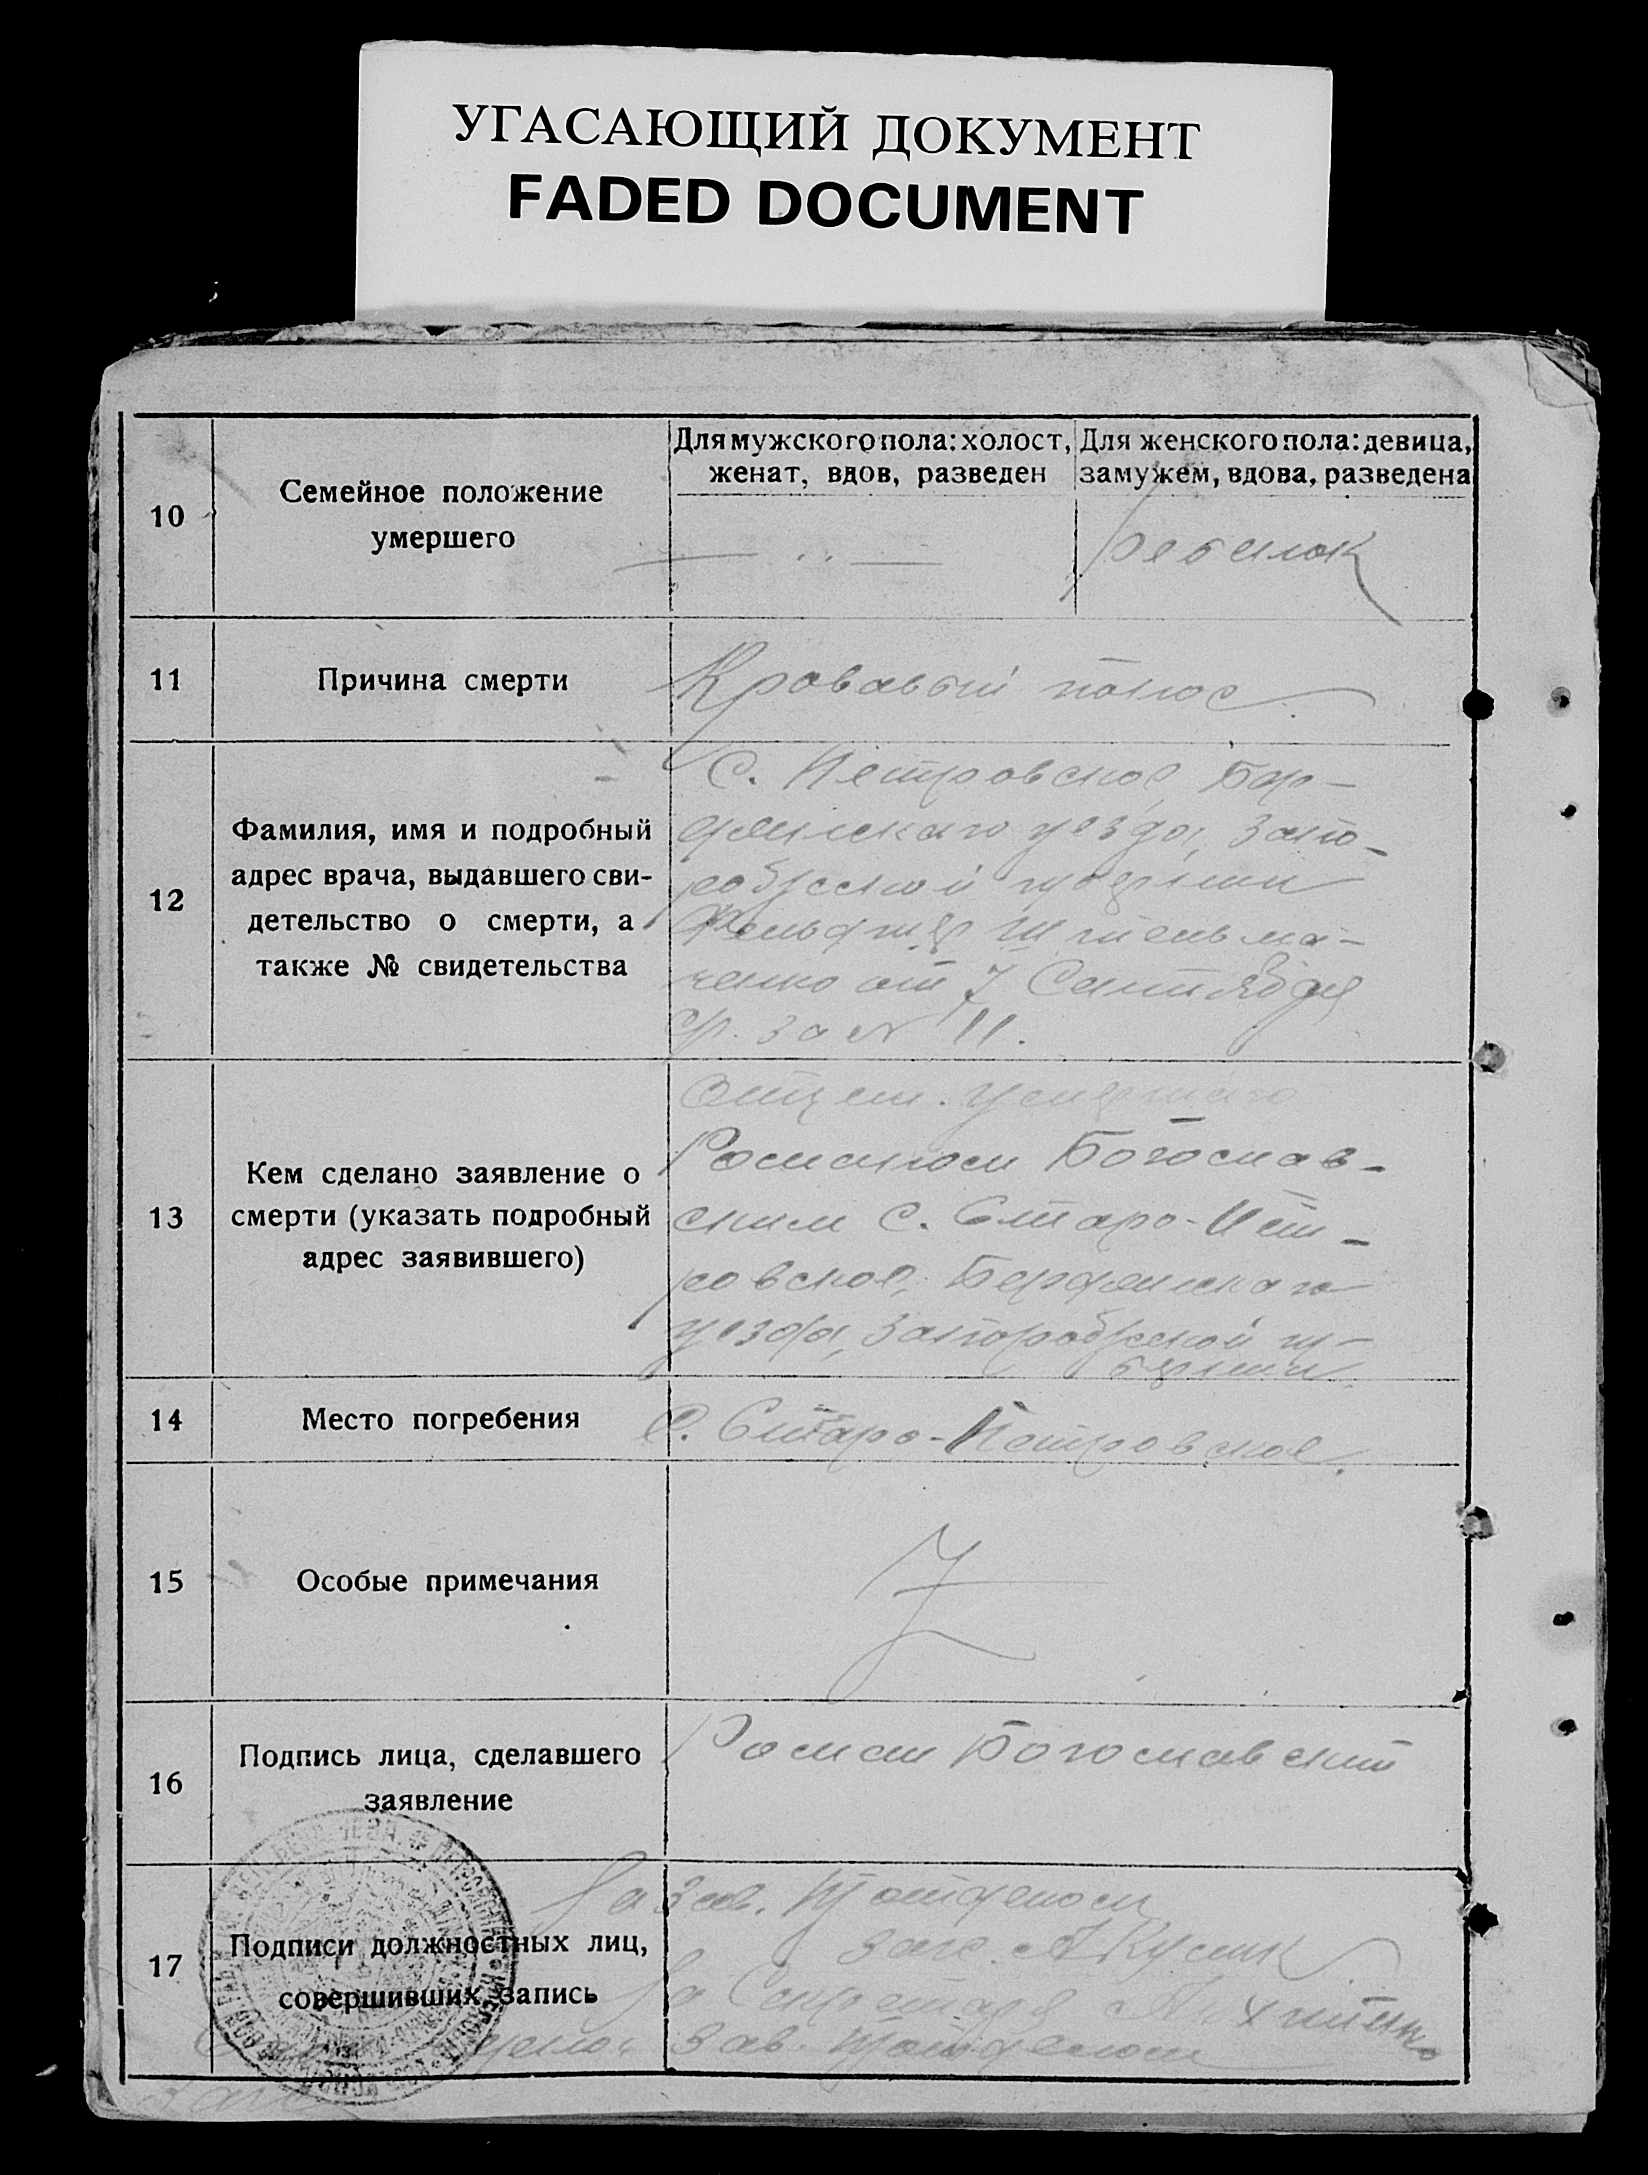 УГАСАЮЩИЙ ДОКУМЕНТ
FADED DOCUMENT
10
Семейное положение
умершего
Для мужского пола: холост,
женат, вдов, разведен
Для женского пола: девица,
замужем, вдова, разведена
ребенок
11
Причина смерти
Кровавый понос
12
Фамилия, имя и подробный
адрес врача, выдавшего сви-
детельство о смерти, а
также № свидетельства
С. Петровское, Бер-
дянскаго уезда, Запо-
рожской губернии
Фельдшер
от 7 Сентября
за № 11.
13
Кем сделано заявление о
смерти (указать подробный
адрес заявившего)
Отцем умершаго
Романом Богослав-
ским С. Старо-Пет-
ровское, Бердянскаго
уезда, Запорожской гу-
бернии.
14
Место погребения
С. Старо-Петровское.
15
Особые примечания
16
Подпись лица, сделавшего
заявление
Роман Богославский
17
Подписи должностных лиц,
совершивших запись
За Зав.
За Секретаря
Зав.